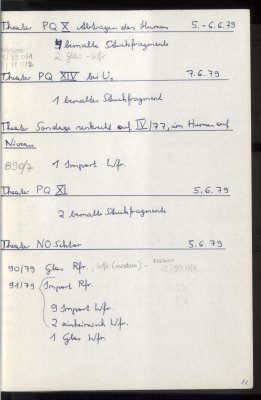 Theater PQ X Abtragen des Humus 5.-6.6.79
4 bemalte Stuckfragmente
2 Glas-Wfr.
Theater PQ XIV bei U. 7.6.79
1 bemaltes Stuckfragment
Theater Sondage senkrecht auf IV/77, im Humus auf
Niveau
890/7 1 Import Wfr.
Theater PQ XI 5.6.79
2 bemalte Stuckfragmente
Theater NO Sektor 5.6.79
90/79 Glas Rfr., Wfr (modern) -
91/79 Import Rfr.
9 Import Wfr.
2 einheimisch Wfr.
1 Glas Wfr.
11